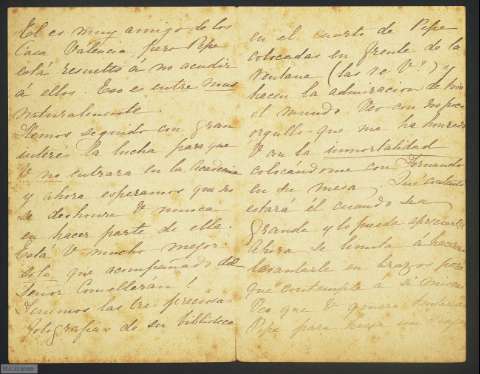 El es muy amigo de los
Casa Valencia pero Pepe
está resuelto á no acudir
á ellos. Eso es entre nous
naturalmente.
Hemos seguido con gran
interés la lucha para que
V no entrara en la Academia
y ahora esperamos que no
se deshonre V nunca
en hacer parte de ella.
Está V mucho mejor
solo, que acompañado del
Señor Comelleran!
Tenemos las tres preciosas
fotografias de su biblioteca
en el cuarto de Pepe
colocadas en frente de la
ventana (las ve V?) y
hacen la admiracion de todo
el mundo. Veo con
orgullo que me ha honrado
V con la inmortalidad
colocandome con Fernando
en su mesa
estará él cuando sea
grande y lo pueda apreciar!
Ahora se limita a hacer
levantarle en brazos para
que contemple a su
Veo que V quiere
Pepe para